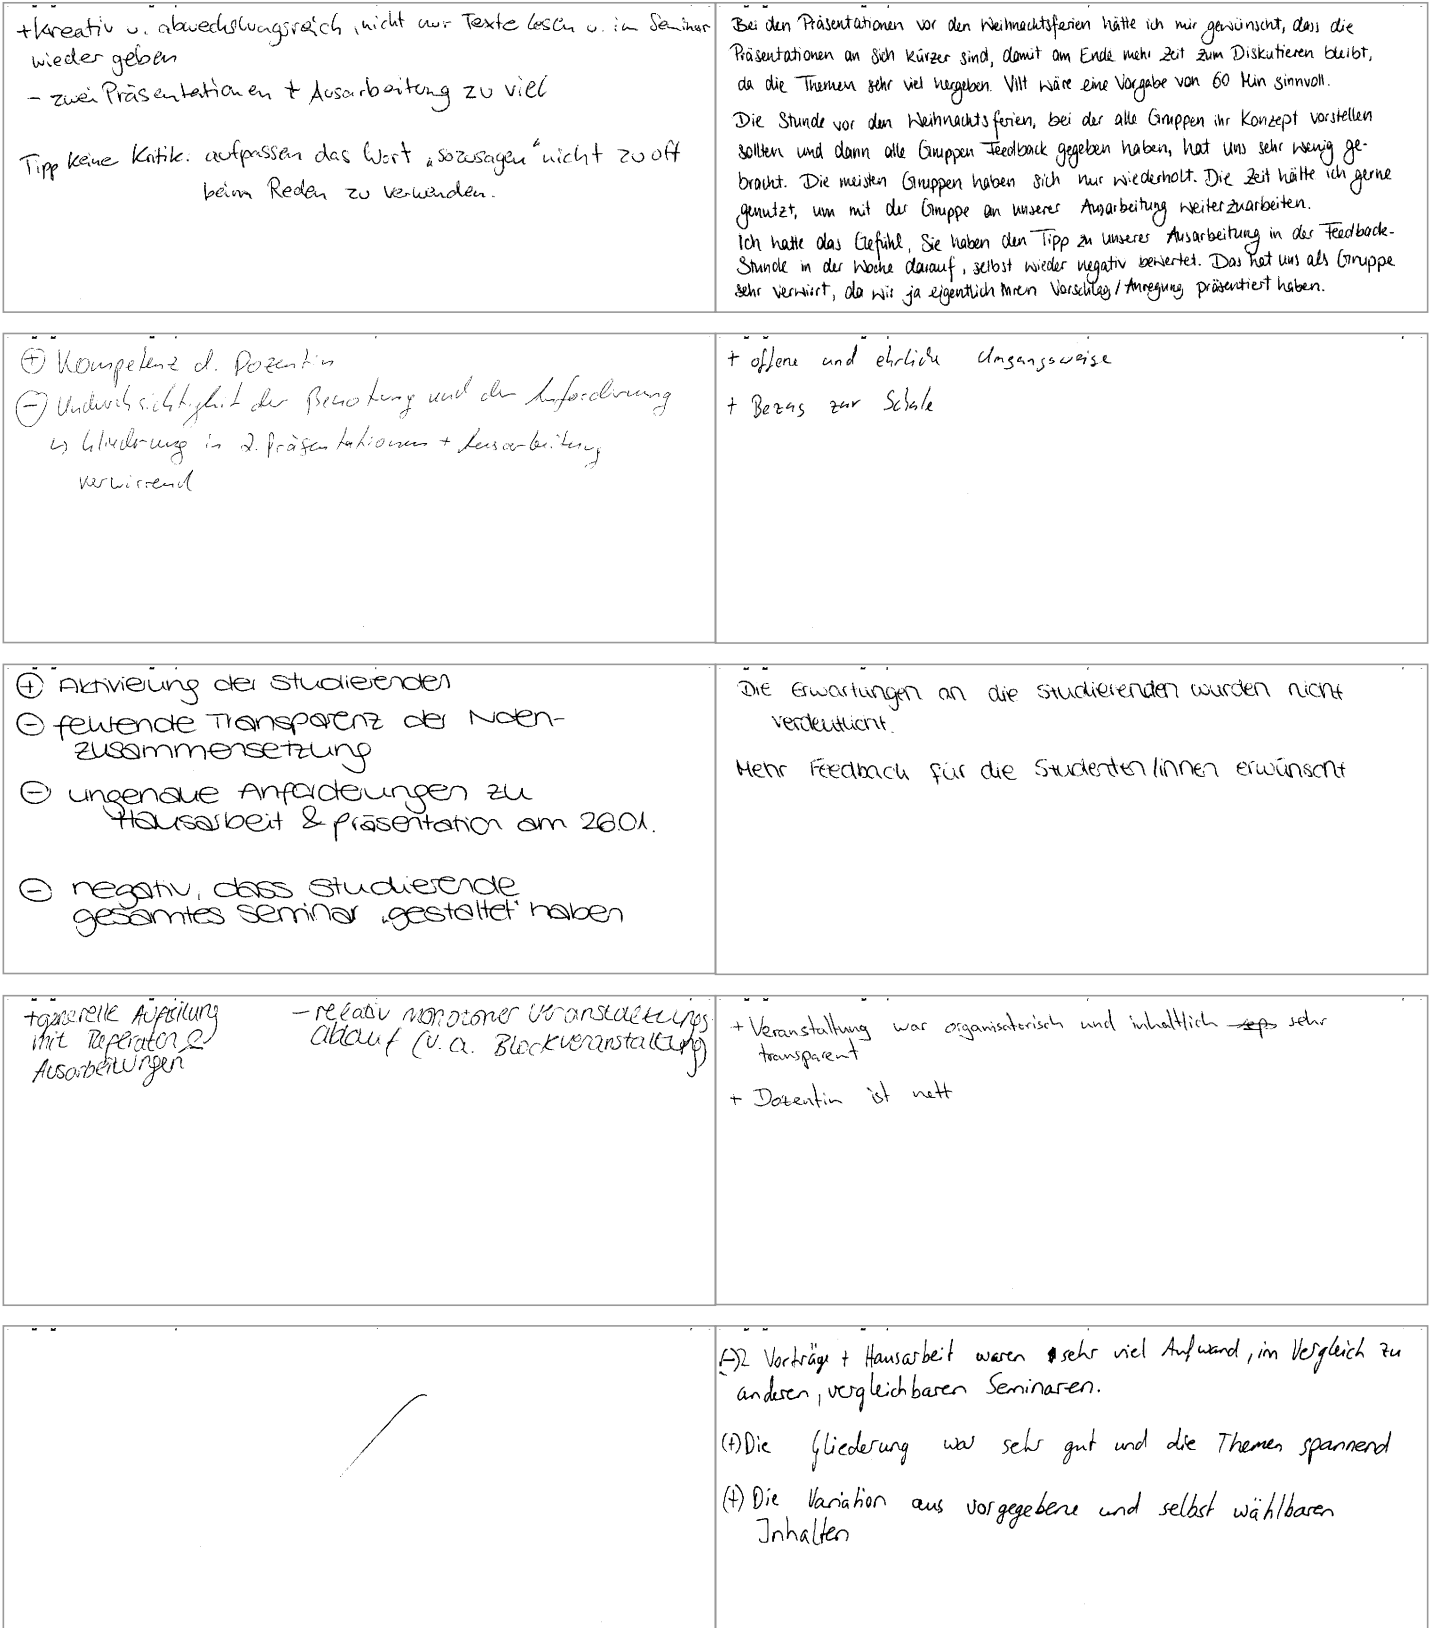 + kreativ u. abwechslungsreich, nicht nur Texte lesen u. im Seminar
wieder geben
- zwei Präsentationen + Ausarbeitung zu viel
Tipp keine Kritik: aufpassen das Wort „sozusagen“ nicht zu oft
beim Reden zu verwenden.
Bei den Präsentationen vor den Weihnachtsferien hätte ich mir gewünscht, dass die
Präsentationen an sich kürzer sind, damit am Ende mehr Zeit zum Diskutieren bleibt,
da die Themen sehr viel hergeben. Vllt wäre eine Vorgabe von 60 Min sinnvoll.
Die Stunde vor den Weihnachtsferien, bei der alle Gruppen ihr Konzept vorstellen
sollten und dann alle Gruppen Feedback gegeben haben, hat uns sehr wenig ge-
bracht. Die meisten Gruppen haben sich nur wiederholt. Die Zeit hätte ich gerne
genutzt, um mit der Gruppe an unserer Ausarbeitung weiterzuarbeiten.
Ich hatte das Gefühl, Sie haben den Tipp zu unserer Ausarbeitung in der Feedback-
Stunde in der Woche darauf, selbst wieder negativ bewertet. Das hat uns als Gruppe
sehr verwirrt, da wir ja eigentlich Ihren Vorschlag/Anregung präsentiert haben.
(+) Kompetenz d. Dozentin
(-) Undurchsichtigkeit der Benotung und der Anforderung
↳ Gliederung in 2. Präsentationen + Ausarbeitung
verwirrend
+ offene und ehrliche Umgangsweise
+ Bezug zur Schule
(+) Aktivierung der Studierenden
(-) fehlende Transparenz der Noten-
zusammensetzung
(-) ungenaue Anforderungen zu
Hausarbeit & Präsentation am 26.01.
(-) negativ, dass Studierende
gesamtes Seminar „gestaltet“ haben
Die Erwartungen an die Studierenden wurden nicht
verdeutlicht.
Mehr Feedback für die Studenten/innen erwünscht
+ generelle Aufteilung
mit Referaten &
Ausarbeitungen
- relativ monotoner Veranstaltungs-
ablauf (v.a. Blockveranstaltung)
+ Veranstaltung war organisatorisch und inhaltlich sehr
transparent
+ Dozentin ist nett
(-) 2 Vorträge + Hausarbeit waren sehr viel Aufwand, im Vergleich zu
anderen, vergleichbaren Seminaren.
(+) Die Gliederung war sehr gut und die Themen spannend
(+) Die Variation aus vorgegebene und selbst wählbaren
Inhalten